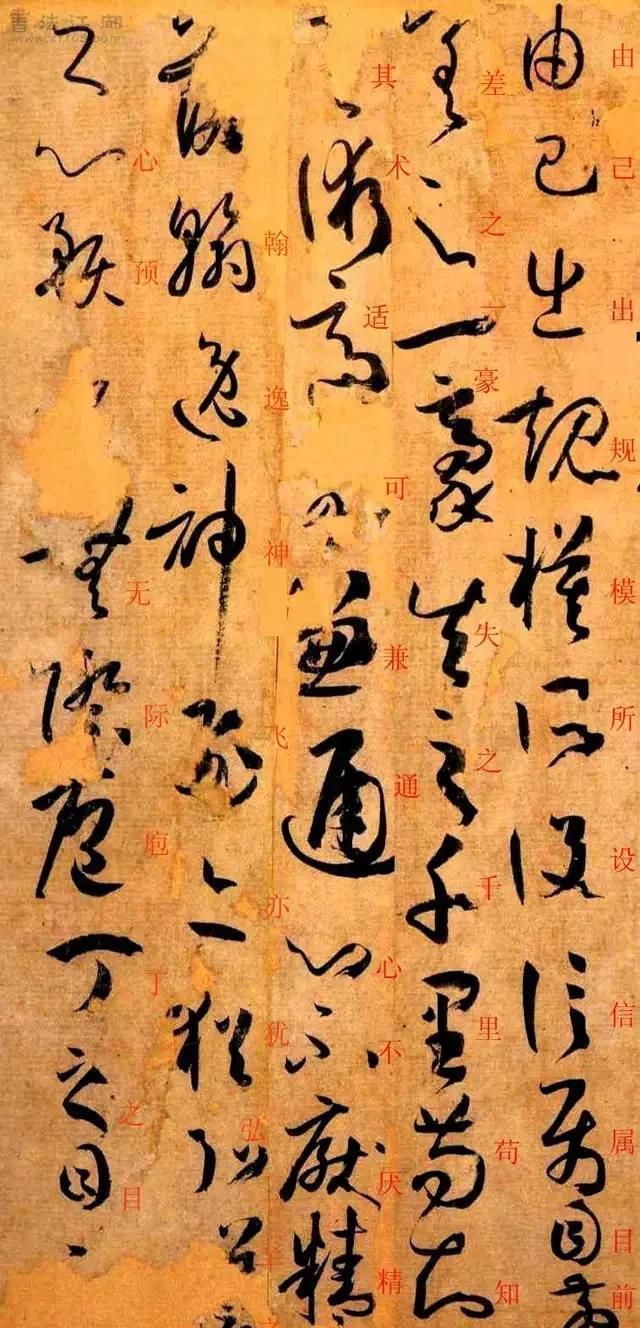 書法江湖
由己出規模所設信屬目前
由己出规模所设信属目前
差之一豪失之千里苟知
差之一豪失之千里苟知
其術適可兼通心不厭精
其术适可兼通心不厌精
落翰逸神飛亦猶弘羊
翰逸神飞亦犹弘羊之
之心預無際庖丁之目
心预无际庖丁之目